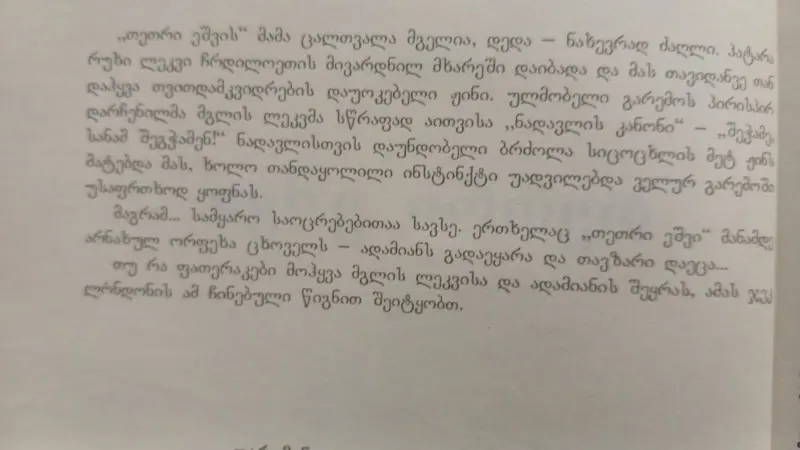 ,,თეთრი ეშვის“ მამა ცალთვალა მგელია, დედა – ნახევრად ძაღლი. პატარა
რუხი ლეკვი ჩრდილოეთის მივარდნილ მხარეში დაიბადა და მას თავიდანვე თან
დაჰყვა თვითდამკვიდრების დაუოკებელი ჟინი. ულმობელი გარემოს პირისპირ
დარჩენილმა მგლის ლეკვმა სწრაფად აითვისა ,,ნადავლის კანონი“ – ,,შეჭამე,
სანამ შეგჭამენ!“ ნადავლისთვის დაუნდობელი ბრძოლა სიცოცხლის მეტ ჟინს
მატებდა მას, ხოლო თანდაყოლილი ინსტინქტი უადვილებდა ველურ გარემოში
უსაფრთხოდ ყოფნას.
მაგრამ... სამყარო საოცრებებითაა სავსე. ერთხელაც ,,თეთრი ეშვი“ მანამდე
არნახულ ორფეხა ცხოველს – ადამიანს გადაეყარა და თავზარი დაეცა...
თუ რა ფათერაკები მოჰყვა მგლის ლეკვისა და ადამიანის შეყრას, ამას ჯეკ
ლონდონის ამ ჩინებული წიგნით შეიტყობთ.